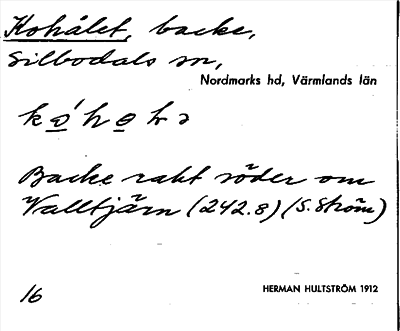 Kohålet, backe,
Silbodals sn,
Nordmarks hd, Värmlands län
Backe rakt söder om
Valltjärn (242.8) (S. Ström)
16
HERMAN HULTSTRÖM 1912